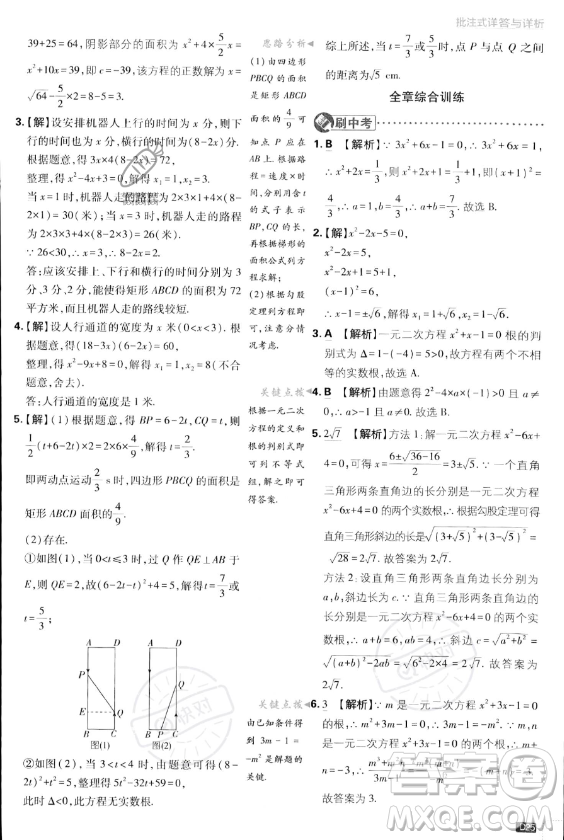 批注式详答与详析
39+25=64，阴影部分的面积为 x²+4×5/2
x²+10x=39，该方程的正数解为
√64-5/2×2=8-5=3.
3.【解】设安排机器人上行的时间为 x 分，则下行的时间为 x 分，横行的时间为(8-2x)分.
根据题意，得 3x×4(8-2x)=72，
整理，得 x²-4x+3=0，解得 x₁=1，x₂=3.
当 x=1 时，机器人走的路程
8-2×1)=30(米)；
当 x=3 时，机器人走的路程
8-2×3)=26(米).
∵ 26<30，∴ x=3.
答：应该安排上、下行和横行的时间分别为 3
分、3 分和 2 分，能使矩形 ABCD 的面积为 72
平方米，而且机器人走的路线较短.
设人行通道的宽度为 x 米(0<x<3).
根据题意，得
整理，得 x²-9x+8=0，解得 x₁=1，x₂=8(不合
题意，舍去).
答：人行通道的宽度是 1 米.
5.【解】(1)根据题意，得 BP=6-2t，CQ=t，
1/2(t+6-2t)×2=2×6×4/9，解得 t=2/3，
即两动点运动 2/3 s 时，四边形 PBCQ 的面积是
矩形 ABCD 面积的 4/9.
(2)存在.
①如图(1)，当 0<t≤3 时，过点 Q 作 QE⊥AB 于
t=5/3；
A D
P
E Q
B C
图(1)
A D
Q
B P C
图(2)
②如图(2)，当 3<t≤4 时，由题意可得(8-
2t)²+t²=5，整理得 5t²-32t+59=0，
此时 Δ<0，则方程无实数根.
思路分析
(1)由四边形
PBCQ 的面积
是矩形 ABCD
面积的 4/9 可
知点 P 在
AB 上，根据路
程=速度×时
间，分别用含 t
的式子表示
BP，CQ的长，
再根据梯形的
面积公式列方
程求解；
(2)根据勾股
定理列方程求
解，注意分类
讨论点 P 的
情况.
关键点拨
根据一元二次
方程的定义和
根的判别式即
可得关于 a 的
不等式
组，解之即可
得答案.
关键点拨
由已知条件得
到 3m-1=
-m² 是解题的
关键.
综上所述，当 t=7/3 或 5/3 时，点 P 和点 Q 之间
的距离为√5 cm.
全章综合训练
刷中考
1. B 【解析】∵ 3x²+6x-1=0，∴ 3x²+6x=1，
∴ x²+2x=1/3，则 x²+2x+1=1/3+1，即(x+1)²=
4/3，∴ a=1，b=4/3，∴ a+b=7/3. 故选 B.
2.【解】x²-2x-5=0，
x²-2x=5，
x²-2x+1=5+1，
(x-1)²=6，
∴ x-1=±√6，解得 x₁=1+√6，x₂=1-√6.
3. A 【解析】一元二次方程 x²+x-1=0 根的判
别式为 Δ=1-(-4)=5>0，故该方程有两个不相
等的实数根. 故选 A.
4. B 【解析】由题意得 2²-4×a×(-1)>0 且
a≠0，解得 a>-1 且 a≠0. 故选 B.
5. 2√7 【解析】方法 1：解一元二次方程 x²-6x+
4=0，得 x=(6±√(36-16))/2=3±√5. ∵ 一个直角
三角形两条直角边的长分别是一元二次方程
x²-6x+4=0 的两个实数根，∴ 根据勾股定理可得
直角三角形斜边的长是√((3+√5)²+(3-√5)²)=
√28=2√7. 故答案为 2√7.
方法 2：设直角三角形两条直角边的长分别为
a,b，∵ a,b 是一元二次方程 x²-6x+4=0 的两个
实数根，∴ a+b=6，ab=4，∴ 斜边长=√(a²+b²)=
√((a+b)²-2ab)=√(6²-2×4)=2√7. 故答案为
2√7.
6. 3 【解析】∵ m 是一元二次方程 x²+3x-1=0
的根，∴ m²+3m-1=0，∴ 3m-1=-m². ∵ m,n
是一元二次方程 x²+3x-1=0 的两个根，
∴ m+n=-3，
故答案为 3.
作业帮答案
MXQE.COM
D25